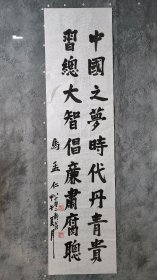 中國之夢時代丹青貴
習總大智倡廉肅腐聰
馬孟仁